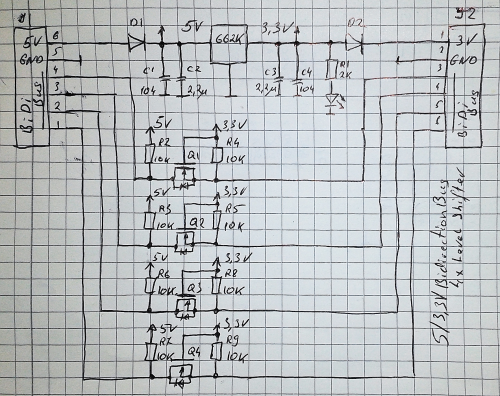 D1
5V
662K
3,3V
D2
J2
6
5V
5
GND
4
3
2
1
BiDi
Bus
C1
104
C2
2,2µ
C3
2,2µ
C4
104
R1
2K
1
3V
2
GND
3
4
5
6
BiDi
Bus
5V
R2
10K
Q1
3,3V
R4
10K
5V
R3
10K
Q2
3,3V
R5
10K
5V
R6
10K
Q3
3,3V
R8
10K
5V
R7
10K
Q4
3,3V
R9
10K
5/3,3V BidirectionBus
4x Level Shifter